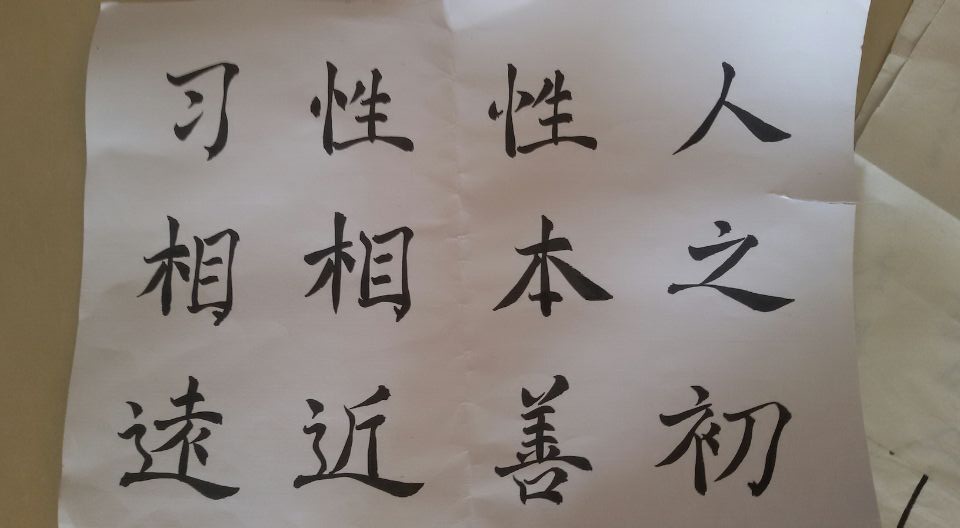 人之初
性本善
性相近
习相遠